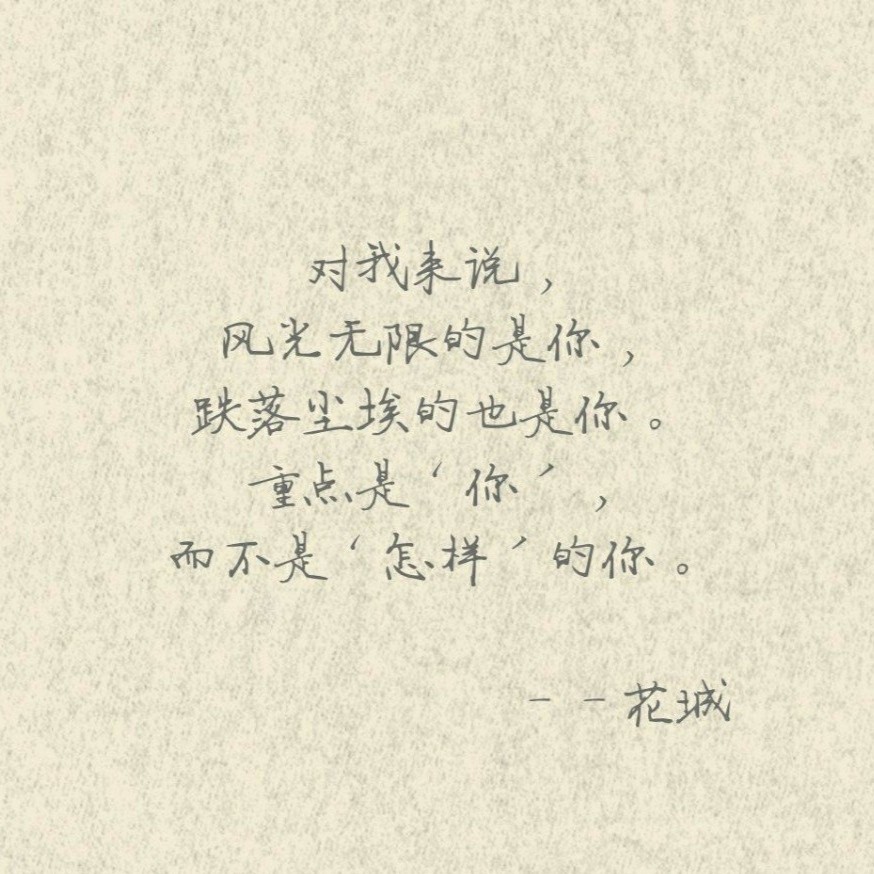 对我来说，
风光无限的是你，
跌落尘埃的也是你。
重点是‘你’，
而不是‘怎样’的你。
－－花城